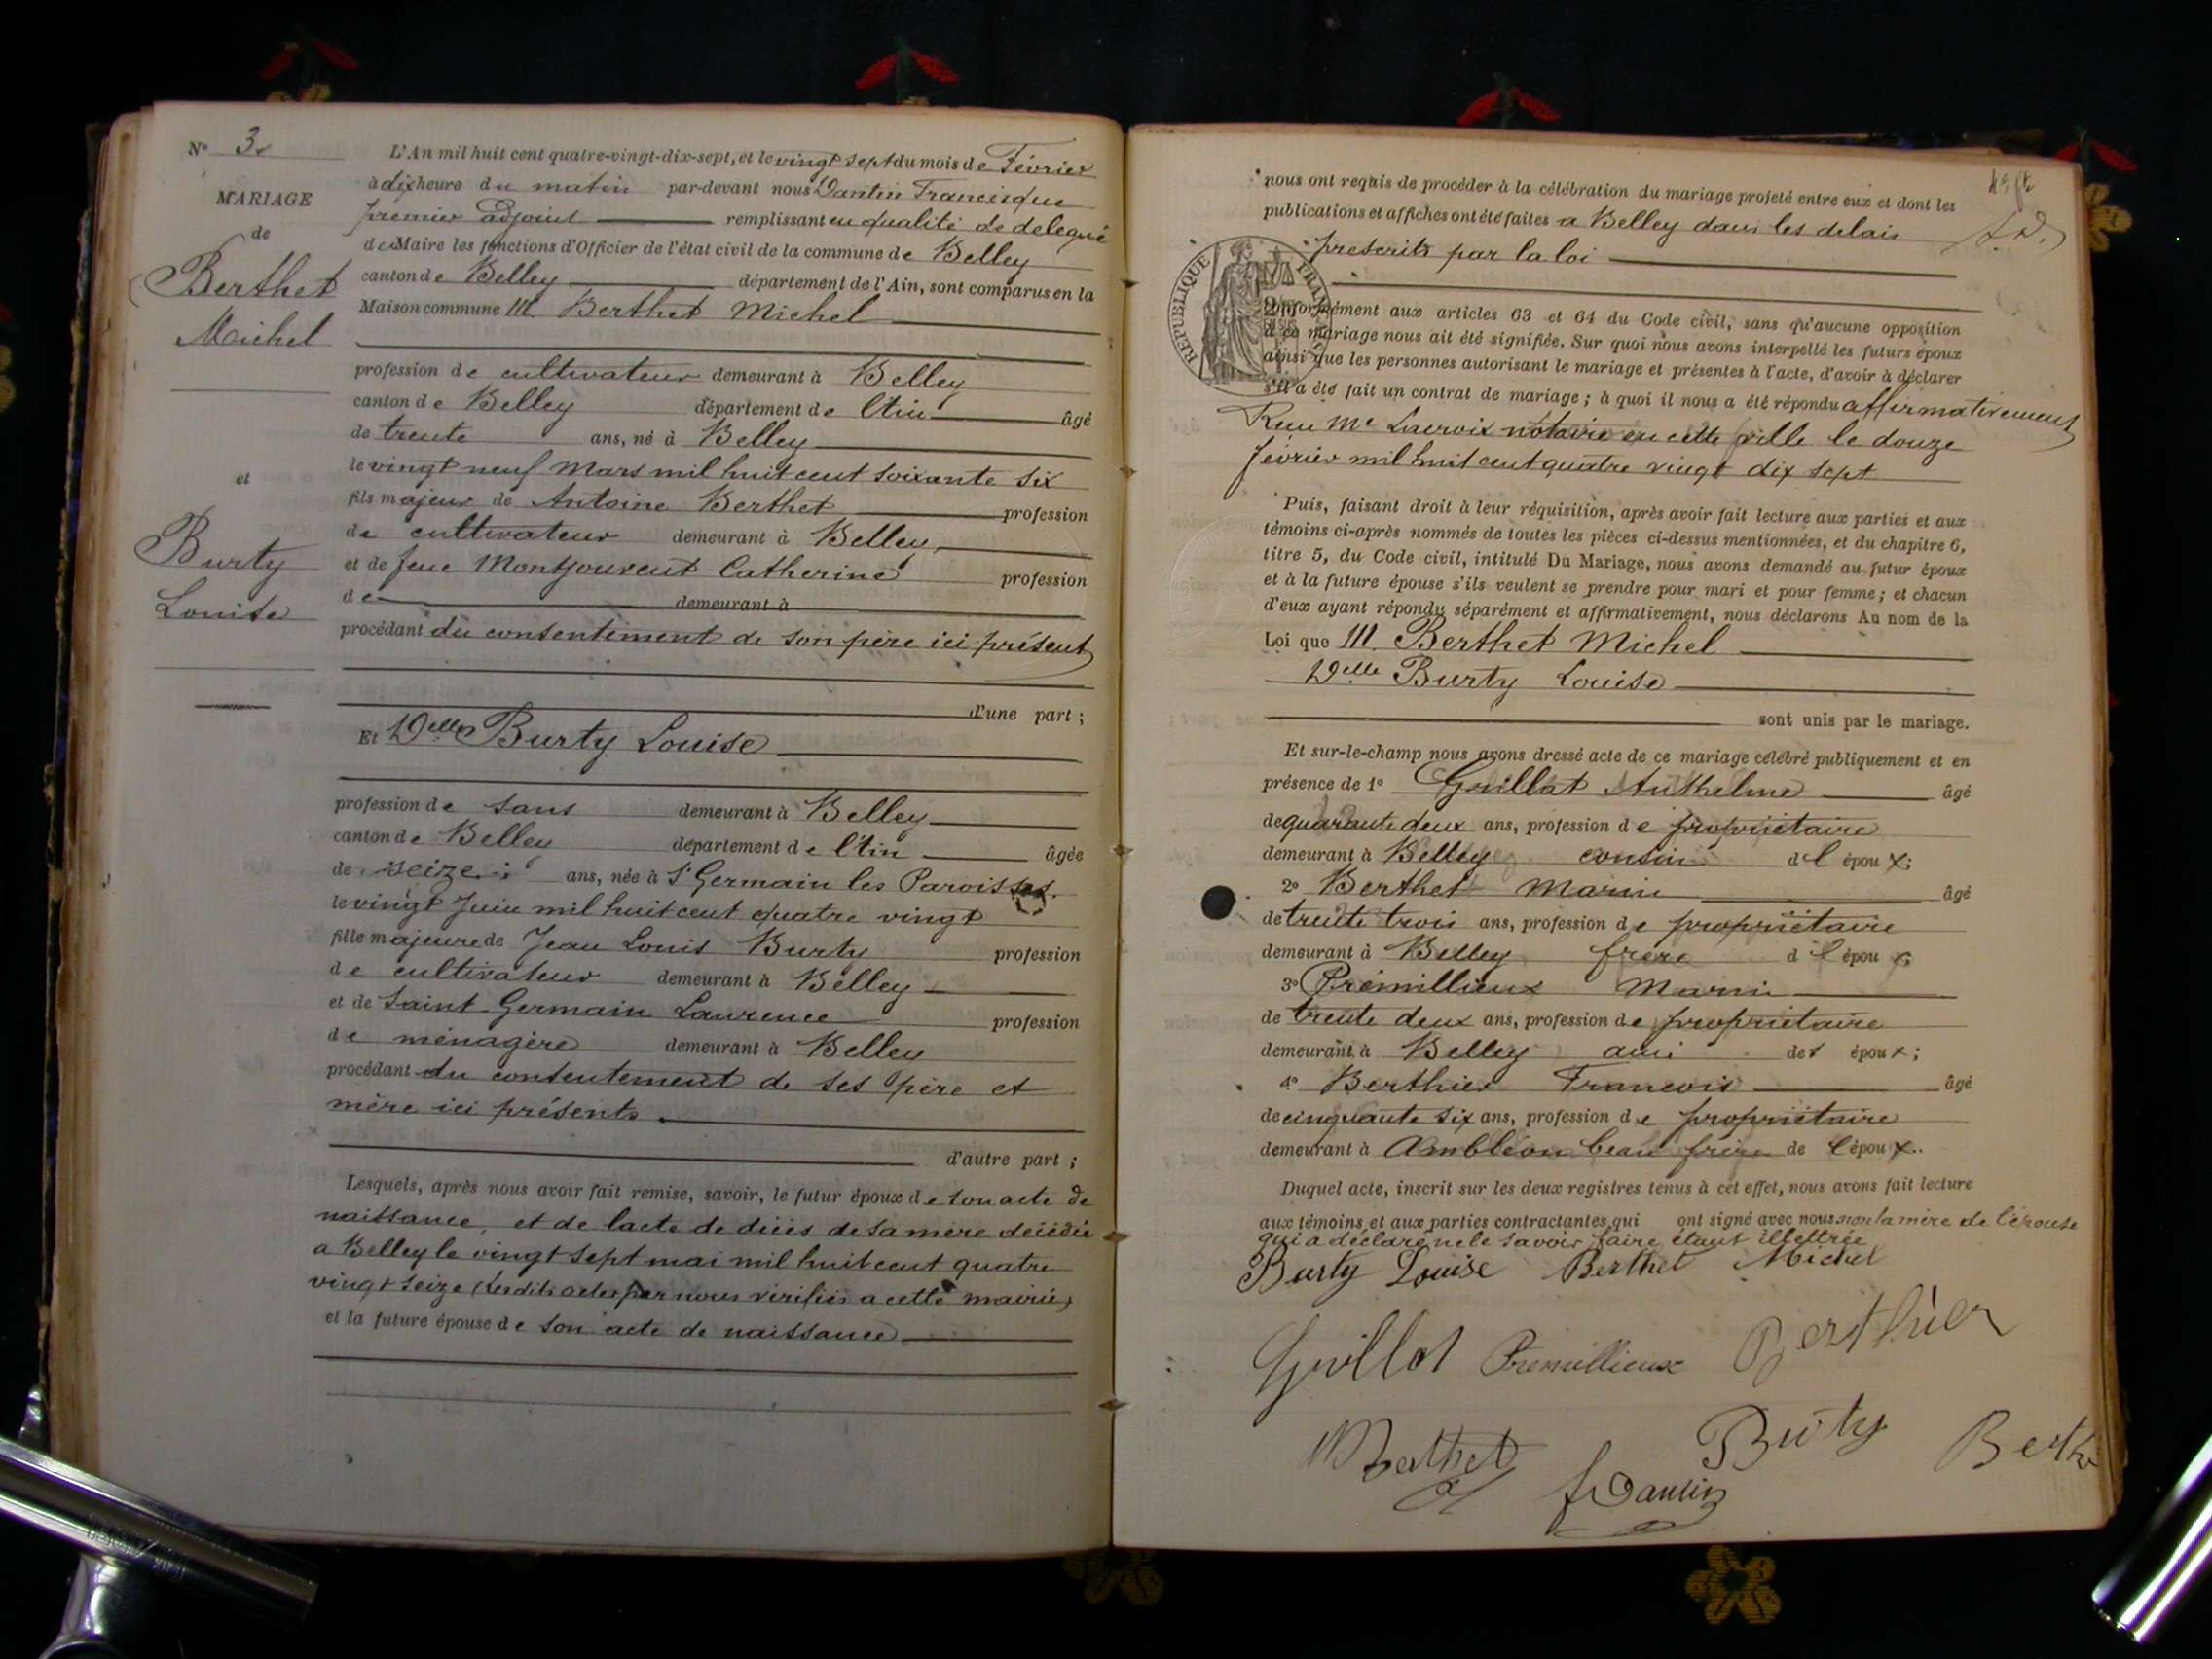 N° 3.
MARIAGE
de
Berthet
Michel
et
Burty
Louise
L'An mil huit cent quatre-vingt-dix-sept, et le vingt sept du mois de Février
à dix heure du matin par-devant nous Dantin Francisque
premier adjoint remplissant en qualité de delegué
du Maire les fonctions d'Officier de l'état civil de la commune de Belley
canton de Belley département de l'Ain, sont comparus en la
Maison commune M. Berthet Michel
profession de cultivateur demeurant à Belley
canton de Belley département de l'Ain âgé
de trente ans, né à Belley
le vingt neuf Mars mil huit cent soixante six
fils majeur de Antoine Berthet profession
de cultivateur demeurant à Belley,
et de feue Montjouvent Catherine profession
de demeurant à
procédant du consentement de son père ici présent
d'une part ;
Et Delle Burty Louise
profession de sans demeurant à Belley
canton de Belley département de l'Ain âgée
de seize ans, née à St Germain les Paroisses.
le vingt Juin mil huit cent quatre vingt
fille majeure de Jean Louis Burty profession
de cultivateur demeurant à Belley
et de Saint-Germain Laurence profession
de ménagère demeurant à Belley
procédant du consentement de ses père et
mère ici présents.
d'autre part ;
Lesquels, après nous avoir fait remise, savoir, le futur époux de son acte de
naissance, et de l'acte de décès de sa mère décédée
a Belley le vingt sept mai mil huit cent quatre
vingt seize (lesdits actes par nous vérifiés a cette mairie)
et la future épouse de son acte de naissance
nous ont requis de procéder à la célébration du mariage projeté entre eux et dont les
publications et affiches ont été faites a Belley dans les delais
prescrits par la loi
RÉPUBLIQUE FRANÇAISE
conformément aux articles 63 et 64 du Code civil, sans qu'aucune opposition
à ce mariage nous ait été signifiée. Sur quoi nous avons interpellé les futurs époux
ainsi que les personnes autorisant le mariage et présentes à l'acte, d'avoir à déclarer
s'il a été fait un contrat de mariage ; à quoi il nous a été répondu affirmativement
Reçu Me Lacroix notaire en cette ville le douze
février mil huit cent quatre vingt dix sept
Puis, faisant droit à leur réquisition, après avoir fait lecture aux parties et aux
témoins ci-après nommés de toutes les pièces ci-dessus mentionnées, et du chapitre 6,
titre 5, du Code civil, intitulé Du Mariage, nous avons demandé au futur époux
et à la future épouse s'ils veulent se prendre pour mari et pour femme ; et chacun
d'eux ayant répondu séparément et affirmativement, nous déclarons Au nom de la
Loi que M. Berthet Michel
Delle Burty Louise
sont unis par le mariage.
Et sur-le-champ nous avons dressé acte de ce mariage célébré publiquement et en
présence de 1° Guillot Anthelme âgé
de quarante deux ans, profession de propriétaire
demeurant à Belley cousin d l époux ;
2° Berthet Marin âgé
de trente trois ans, profession de propriétaire
demeurant à Belley frère d l époux ;
3° Prémillieux Marin
de trente deux ans, profession de propriétaire
demeurant à Belley ami des époux ;
4° Berthier Francois âgé
de cinquante six ans, profession de propriétaire
demeurant à Ambléon beau frère de l'époux.
Duquel acte, inscrit sur les deux registres tenus à cet effet, nous avons fait lecture
aux témoins et aux parties contractantes qui ont signé avec nous non la mère de l'épouse
qui a déclaré ne le savoir faire étant illettrée
Burty Louise Berthet Michel
Guillot Premillieux Berthier
M Berthet Burty
F Dantin